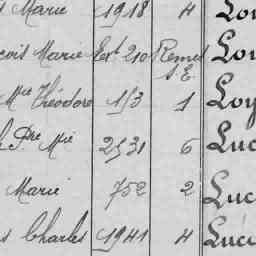 Marie 1918 4 Lou
çois Marie Ext 210 Rennes S.E. Lou
Mie Théodore 153 1 Loy
h Pre Mie 2531 6 Luc
Marie 752 2 Luc
s Charles 1941 4 Luc